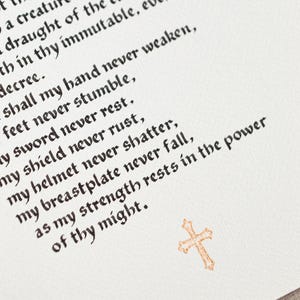 a creature
draught of the
in thy immutable, eve
decree.
shall my hand never weaken,
feet never stumble,
my sword never rest.
my shield never rust,
my helmet never shatter,
my breastplate never fall,
as my strength rests in the power
of thy might.